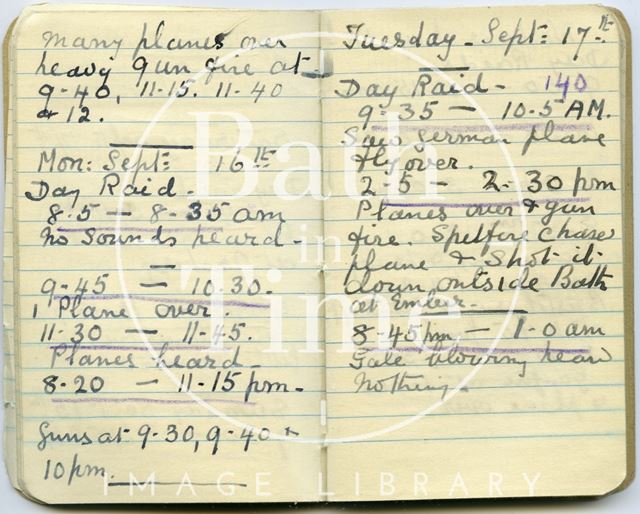 many planes over
heavy gun fire at
9-40, 11-15. 11-40
& 12.
Mon: Sept: 16th
Day Raid.
8.5 — 8-35 am
No Sounds heard -
9-45 — 10.30.
1 Plane over.
11-30 — 11-45.
Planes heard
8-20 — 11-15 pm.
Guns at 9-30, 9-40 +
10 pm.
Tuesday - Sept: 17th
Day Raid - 140
9-35 — 10.5 AM.
Saw German plane
fly over.
2-5 — 2-30 pm
Planes over & gun
fire. Spitfire chase
plane & Shot it
down outside Bath
at
8-45 pm — 1-0 am
Gale blowing hear
nothing.
Bath
in
Time
IMAGE LIBRARY